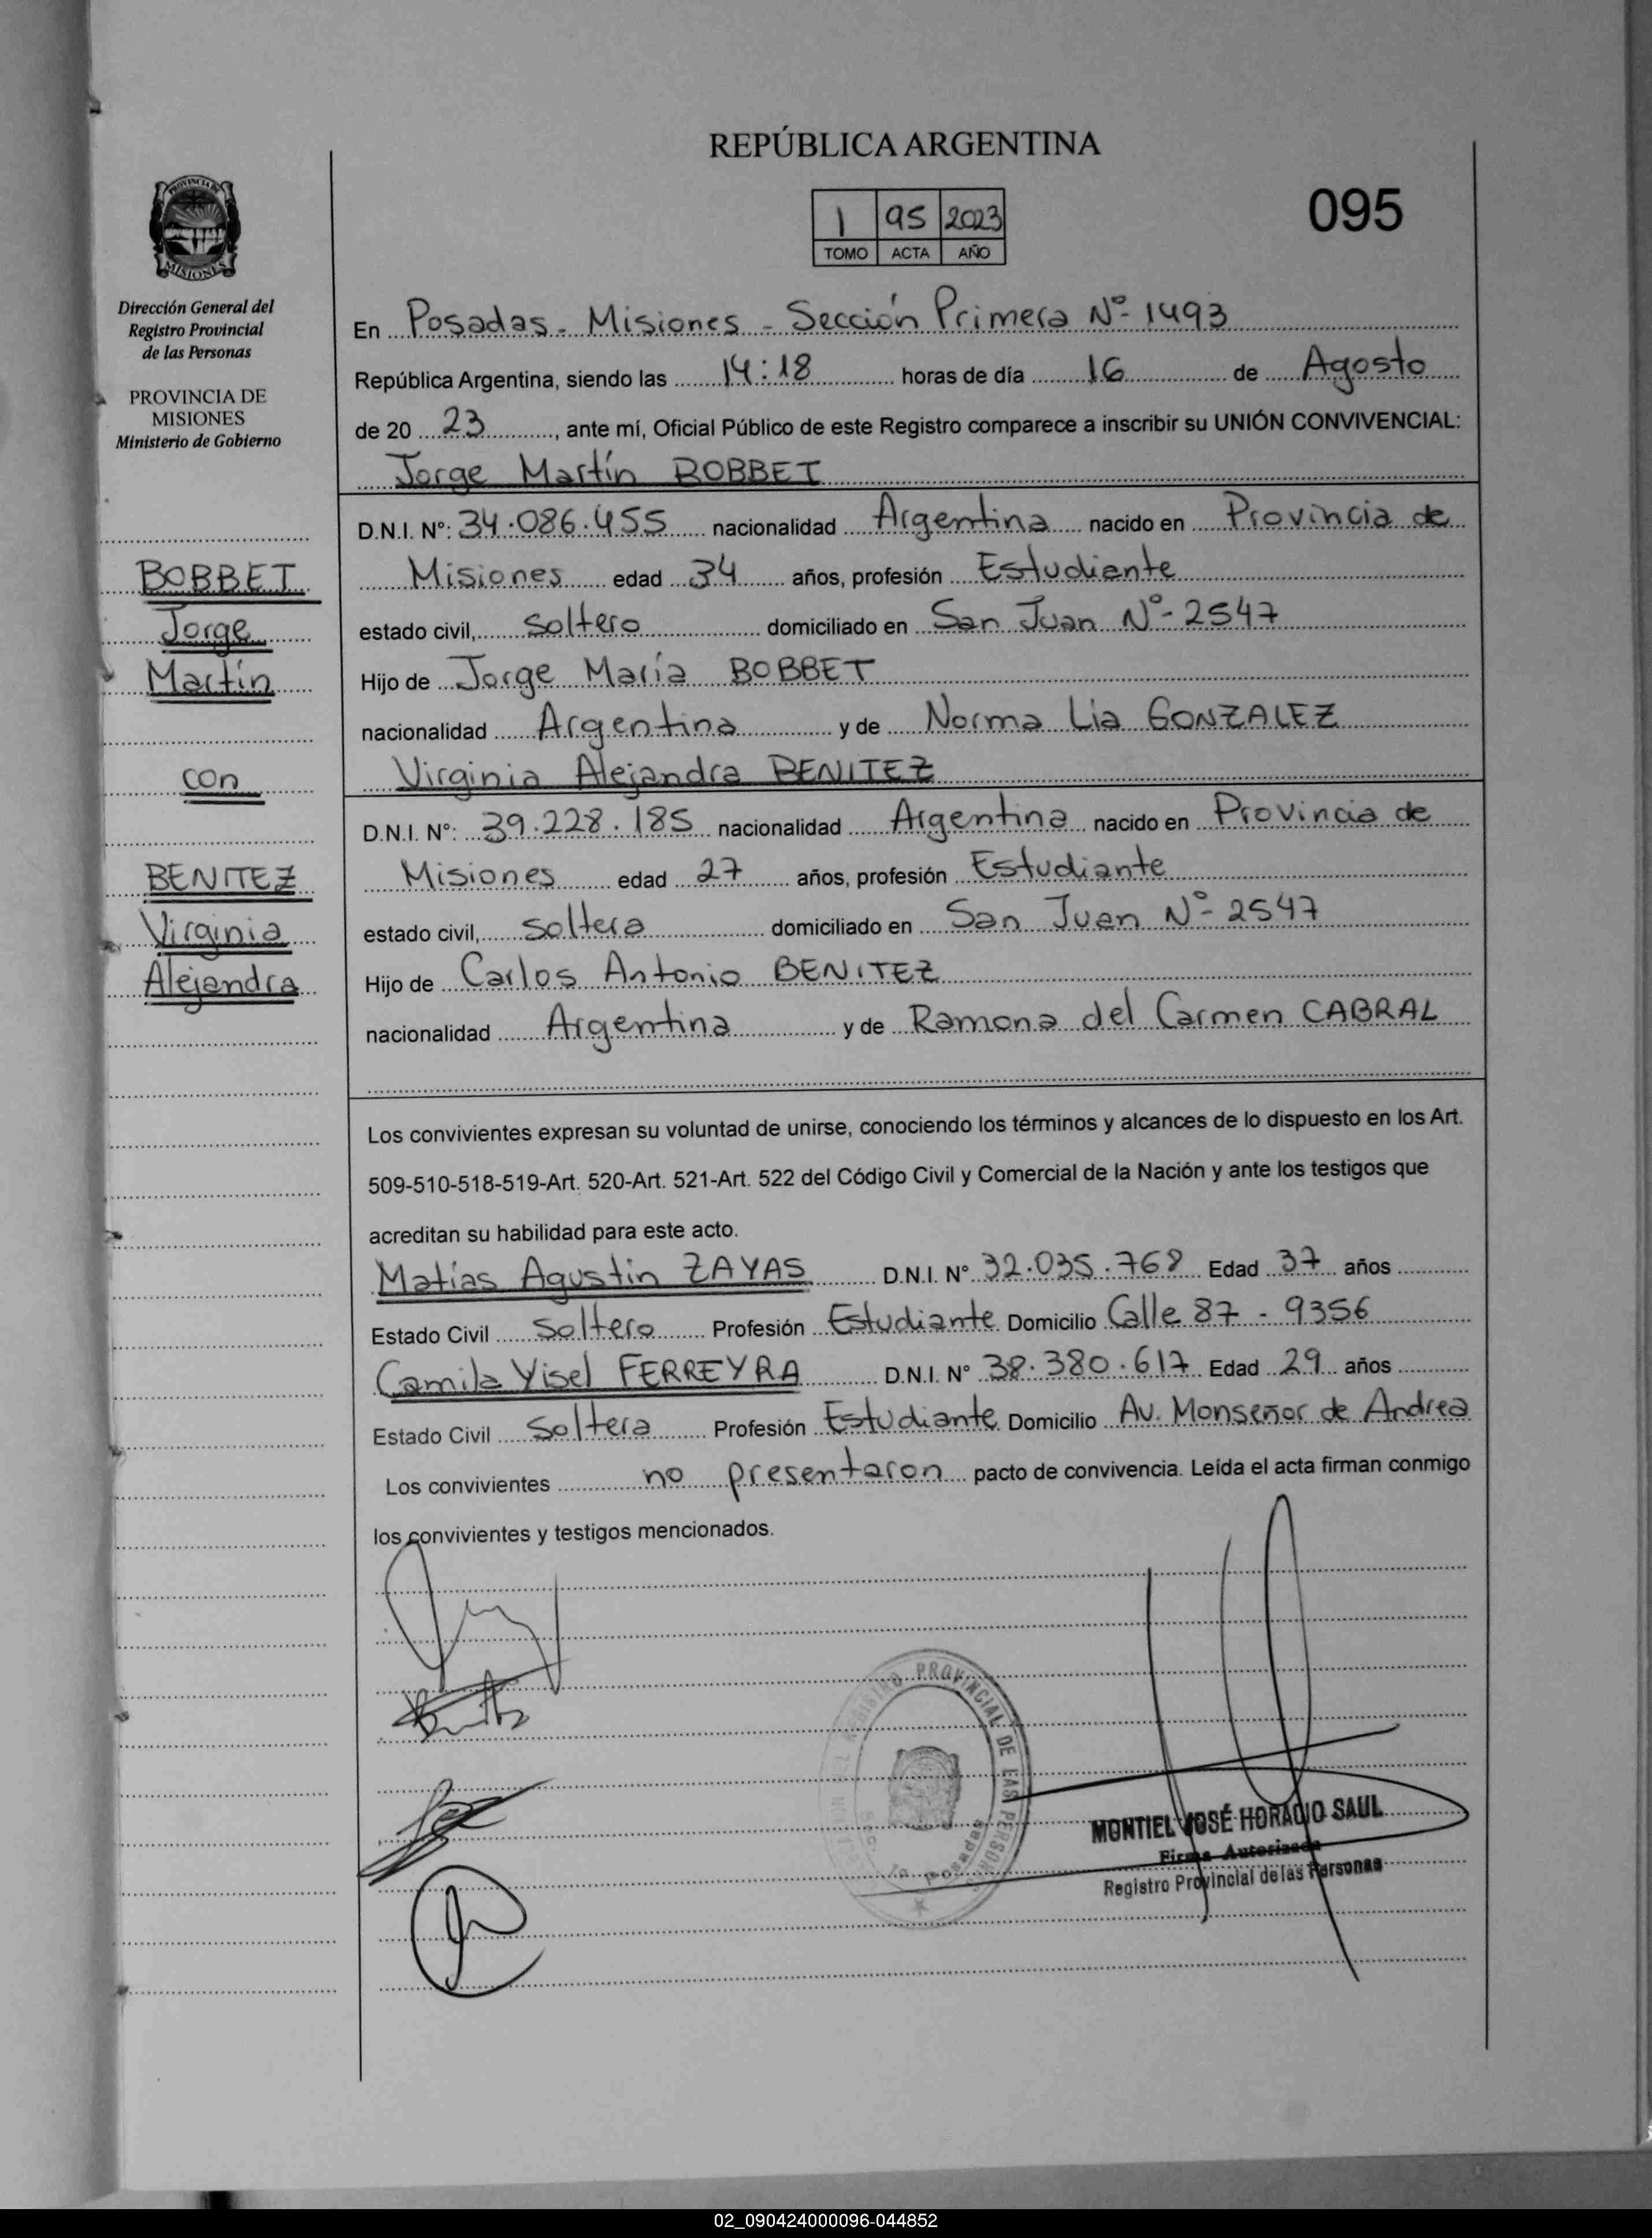 REPÚBLICA ARGENTINA
1 95 2023
TOMO ACTA AÑO
095
PROVINCIA DE
MISIONES
Dirección General del
Registro Provincial
de las Personas
PROVINCIA DE
MISIONES
Ministerio de Gobierno
BOBBET
Jorge
Martín
con
BENITEZ
Virginia
Alejandra
En Posadas - Misiones - Sección Primera Nº- 1493
República Argentina, siendo las 14:18 horas de día 16 de Agosto
de 20 23, ante mí, Oficial Público de este Registro comparece a inscribir su UNIÓN CONVIVENCIAL:
Jorge Martín BOBBET
D.N.I. Nº: 34.086.455 nacionalidad Argentina nacido en Provincia de
Misiones edad 34 años, profesión Estudiante
estado civil, soltero domiciliado en San Juan Nº- 2547
Hijo de Jorge María BOBBET
nacionalidad Argentina y de Norma Lia GONZALEZ
Virginia Alejandra BENITEZ
D.N.I. Nº: 39.228.185 nacionalidad Argentina nacido en Provincia de
Misiones edad 27 años, profesión Estudiante
estado civil, soltera domiciliado en San Juan Nº- 2547
Hijo de Carlos Antonio BENITEZ
nacionalidad Argentina y de Ramona del Carmen CABRAL
Los convivientes expresan su voluntad de unirse, conociendo los términos y alcances de lo dispuesto en los Art.
509-510-518-519-Art. 520-Art. 521-Art. 522 del Código Civil y Comercial de la Nación y ante los testigos que
acreditan su habilidad para este acto.
Matías Agustin ZAYAS D.N.I. Nº 32.035.768 Edad 37 años
Estado Civil soltero Profesión Estudiante Domicilio Calle 87 - 9356
Camila Yisel FERREYRA D.N.I. Nº 38.380.617 Edad 29 años
Estado Civil soltera Profesión Estudiante Domicilio Av. Monseñor de Andrea
Los convivientes no presentaron pacto de convivencia. Leída el acta firman conmigo
los convivientes y testigos mencionados.
REGISTRO PROVINCIAL DE LAS PERSONAS
Posadas
MONTIEL JOSÉ HORACIO SAUL
Firma Autorizada
Registro Provincial de las Personas
02_090424000096-044852